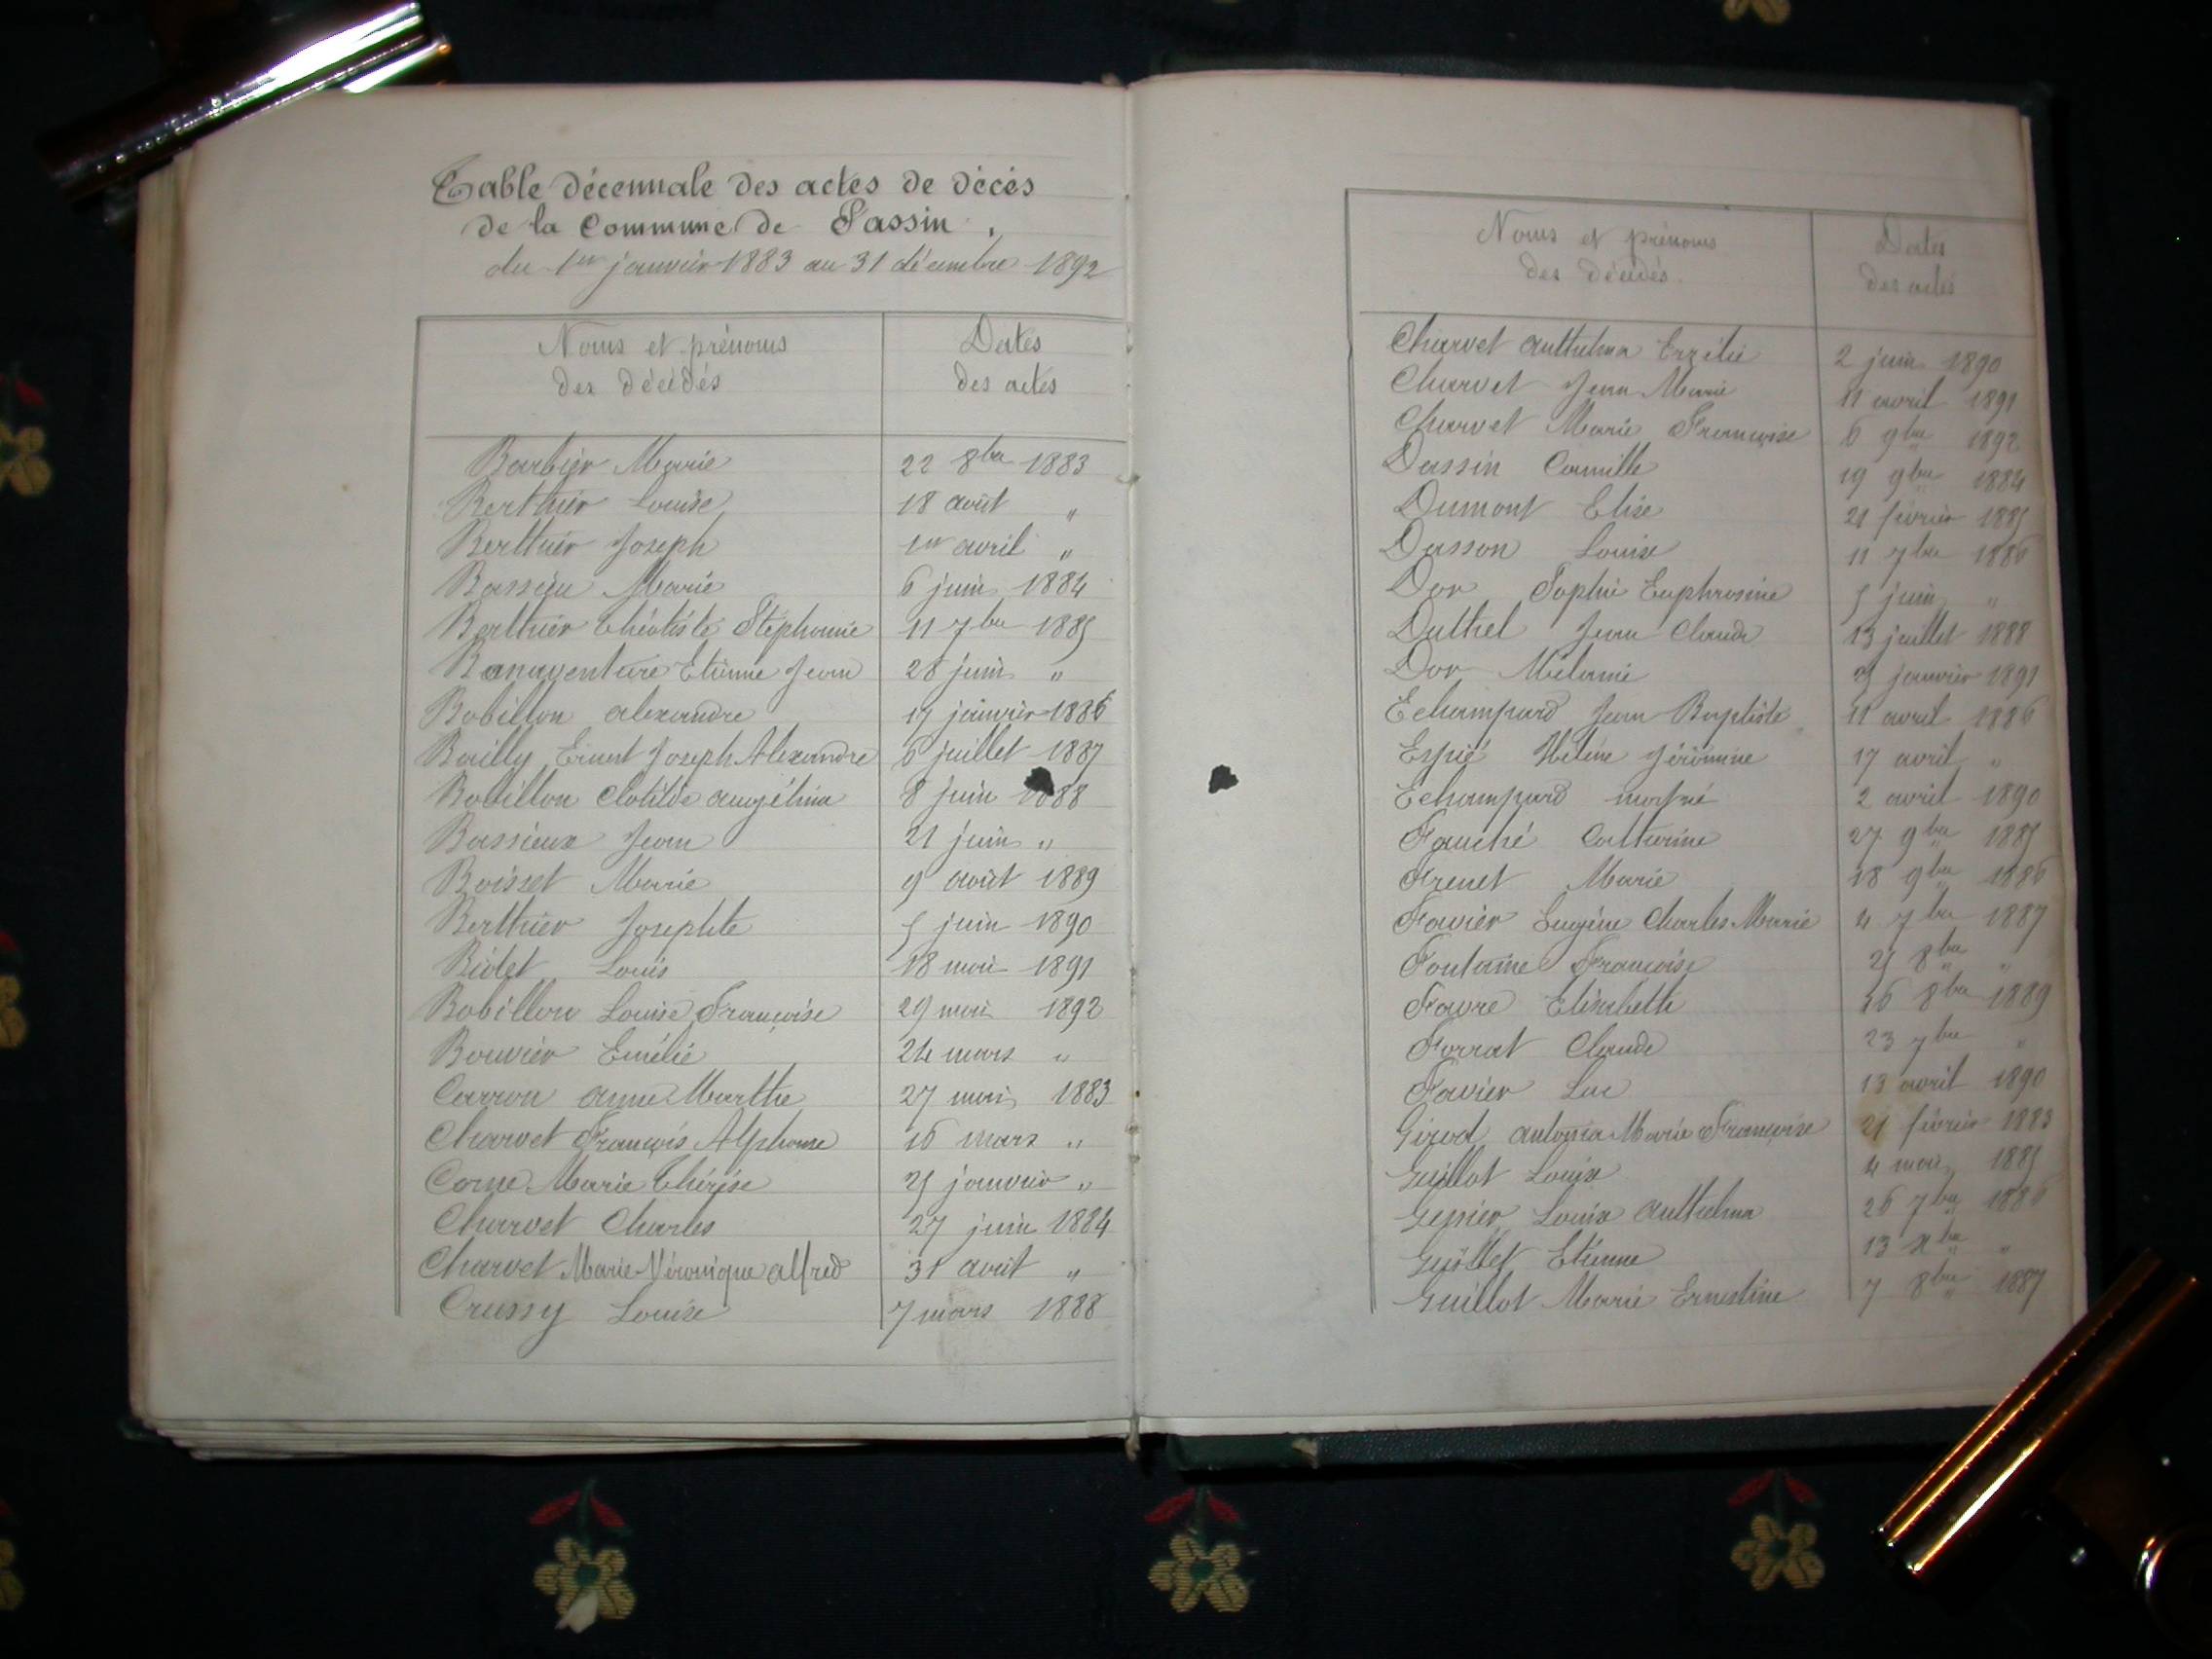 Table décennale des actes de décès
de la Commune de Passin.
du 1er janvier 1883 au 31 décembre 1892
Noms et prénoms des décédés Dates des actes
Barbier Marie 22 8bre 1883
Berthier Louise 18 août "
Berthier Joseph 1er avril "
Bassieu Marie 6 juin 1884
Berthier Théotiste Stéphanie 11 7bre 1885
Bonaventure Etienne Jean 28 juin "
Bobillon alexandre 17 janvier 1886
Bailly Ernest Joseph Alexandre 6 juillet 1887
Bobillon Clotilde angélina 8 juin 1888
Bassieux Jean 21 juin "
Boisset Marie 9 août 1889
Berthier Josephte 5 juin 1890
Bidet Louis 18 mai 1891
Bobillon Louise Françoise 29 mai 1892
Bouvier Emélie 24 mars "
Carron anne Marthe 27 mai 1883
Charvet François Alphonse 16 mars "
Corne Marie Thérèse 25 janvier "
Charvet Charles 27 juin 1884
Charvet Marie Véronique alfred 31 août "
Crussy Louise 7 mars 1888
Noms et prénoms des décédés. Dates des actes
Charvet Anthelma 2 juin 1890
Charvet Jean Marie 11 avril 1891
Charvet Marie Françoise 6 9bre 1892
Dassin Camille 19 9bre 1884
Dumont Elise 21 février 1885
Dasson Louise 11 7bre 1886
Dor Sophie Euphrosine 5 juin "
Duthel Jean Claude 13 juillet 1888
Dor Mélanie 25 janvier 1891
Echampard Jean Baptiste 11 avril 1886
Espié Hélène Jéromine 17 avril "
Echampard mort né 2 avril 1890
Fauché Catherine 27 9bre 1885
Frenet Marie 18 9bre 1886
Favier Eugène Charles Marie 4 7bre 1887
Fontaine Françoise 25 8bre "
Favre Elisabeth 26 8bre 1889
Forrat Claude 23 7bre "
Favier Luc 13 avril 1890
Girod antonia Marie Françoise 21 février 1883
Guillot Louise 4 mai 1885
Louise anthelma 26 7bre 1886
Guillet Etienne 13 xbre "
Guillot Marie Ernestine 7 8bre 1887